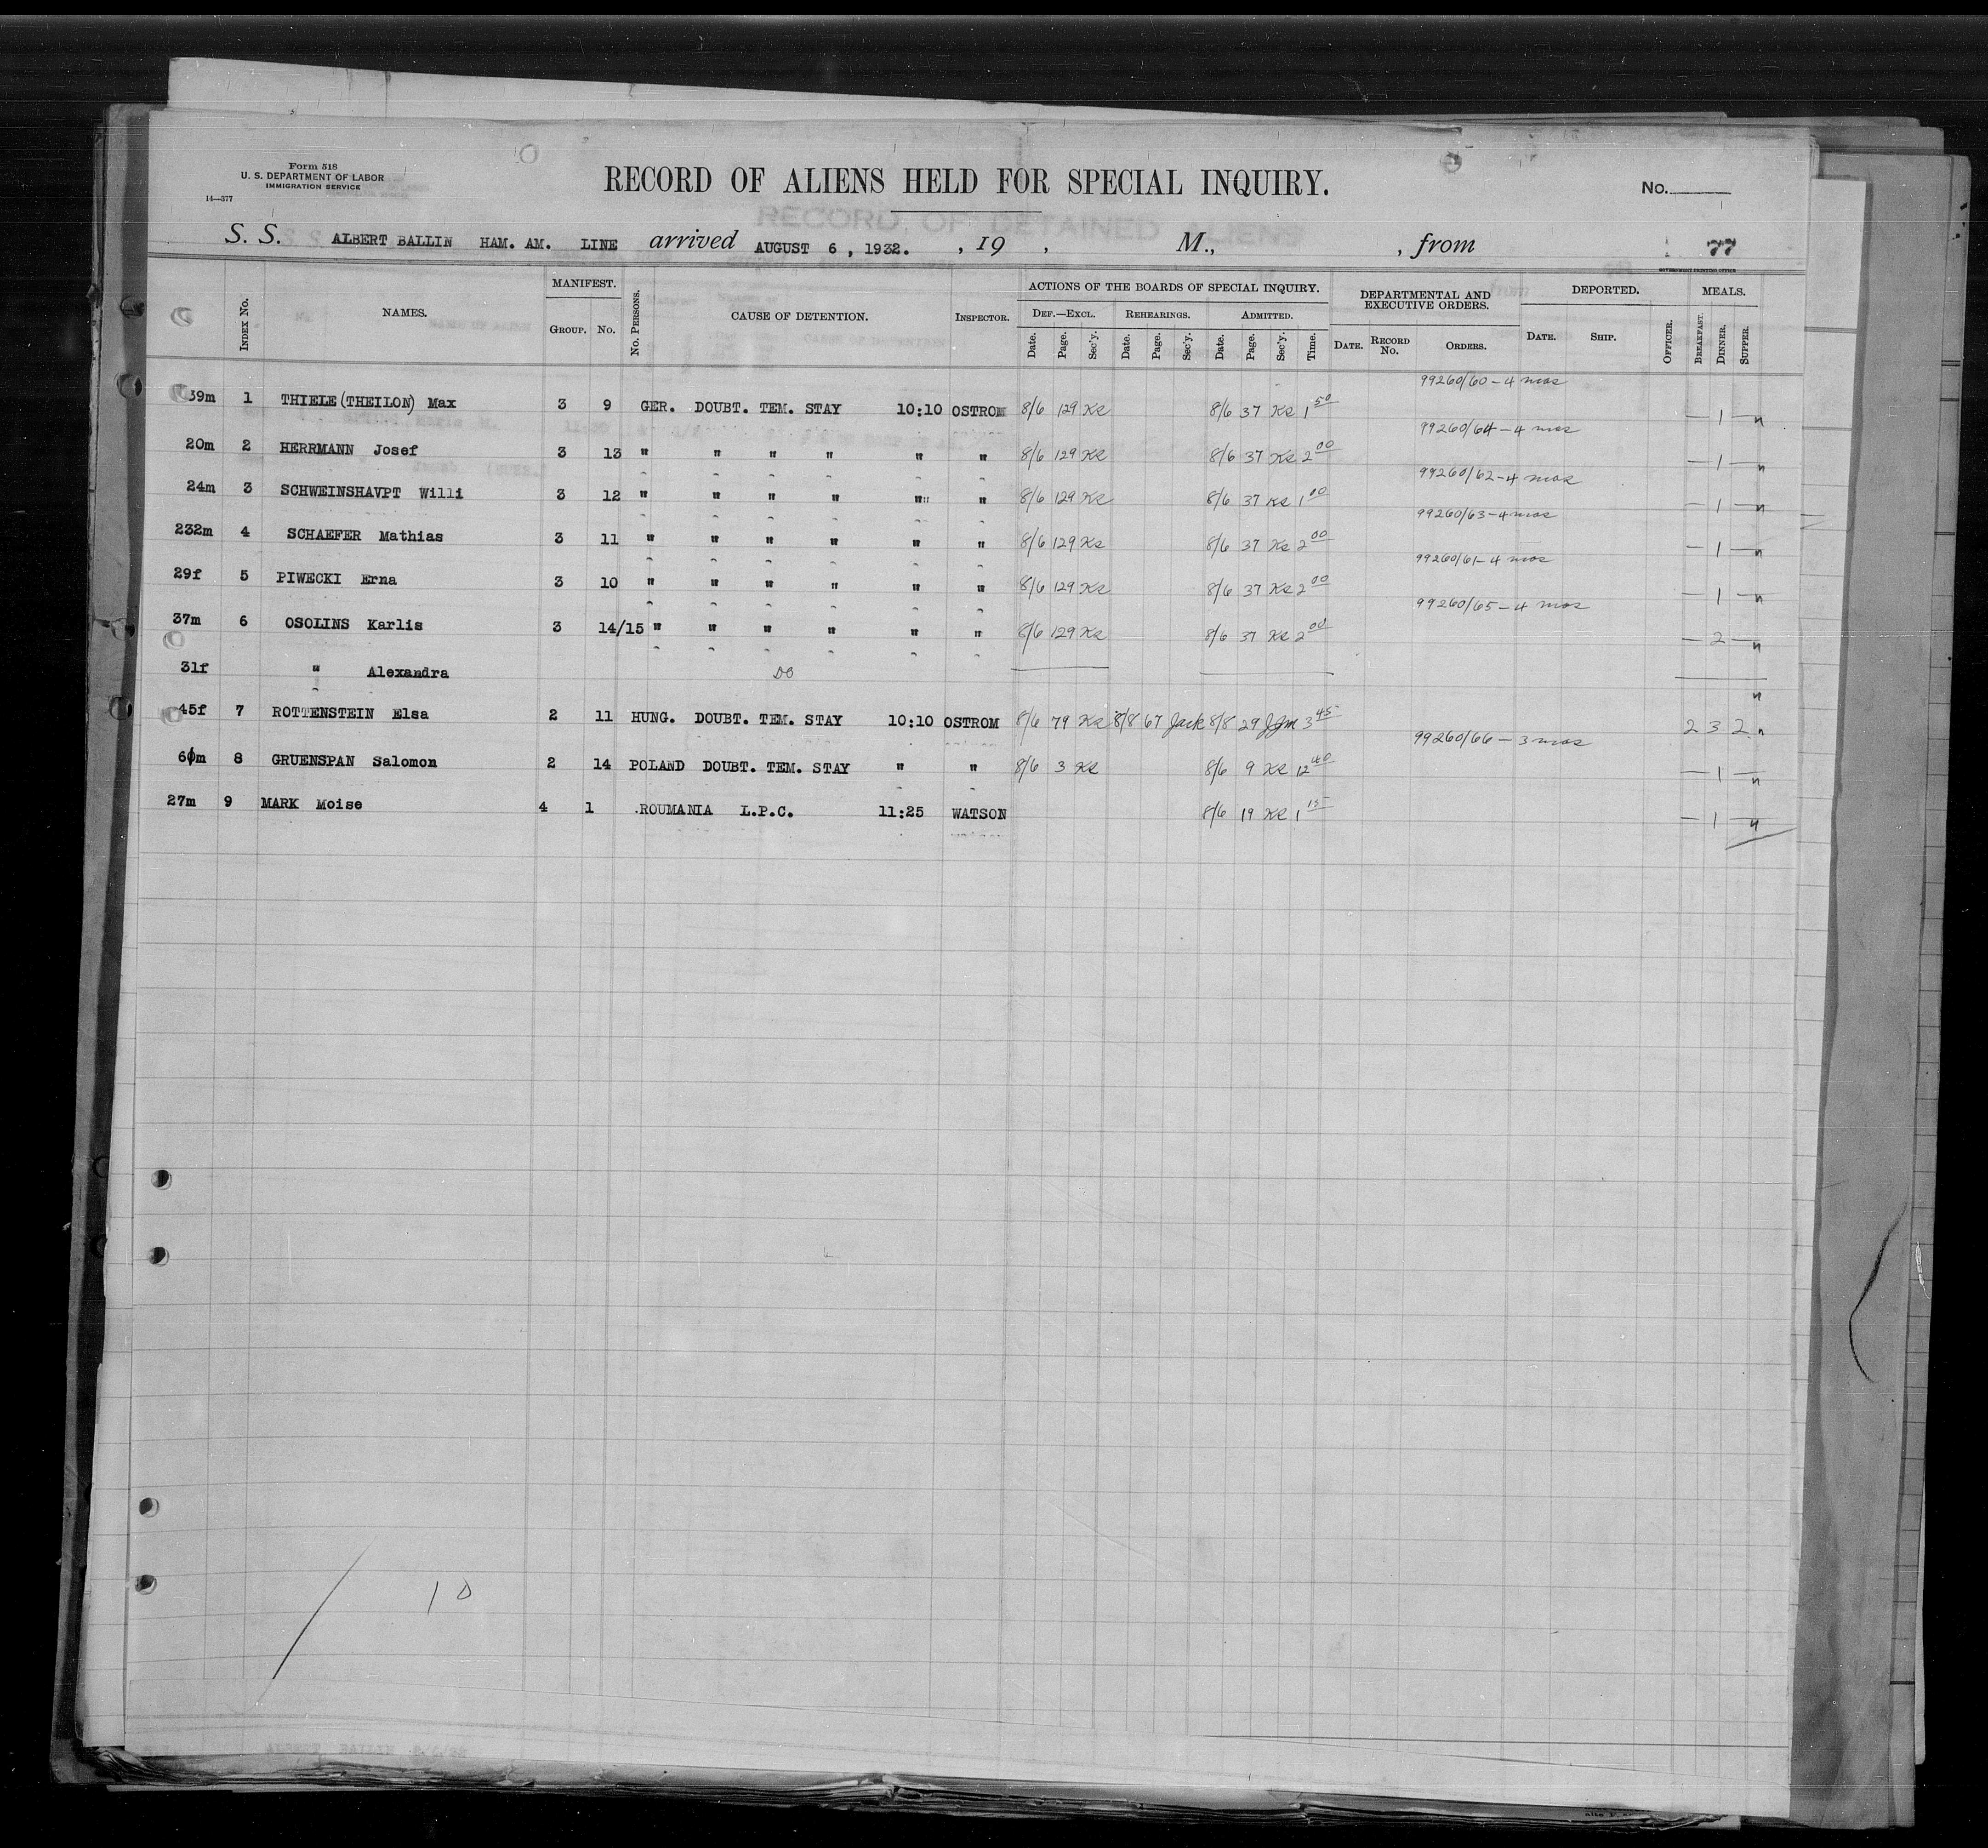 Form 518
U. S. DEPARTMENT OF LABOR
IMMIGRATION SERVICE
14—377
RECORD OF ALIENS HELD FOR SPECIAL INQUIRY.
No.
S. S. ALBERT BALLIN HAM. AM. LINE arrived AUGUST 6, 1932. , 19 , M., , from 77
GOVERNMENT PRINTING OFFICE
INDEX No. NAMES. MANIFEST. No. PERSONS. CAUSE OF DETENTION. INSPECTOR. ACTIONS OF THE BOARDS OF SPECIAL INQUIRY. DEPARTMENTAL AND EXECUTIVE ORDERS. DEPORTED. MEALS.
GROUP. No. DEF.—EXCL. REHEARINGS. ADMITTED.
Date. Page. Sec'y. Date. Page. Sec'y. Date. Page. Sec'y. Time. DATE. RECORD No. ORDERS. DATE. SHIP. OFFICER. BREAKFAST. DINNER. SUPPER.
99260/60 - 4 mos
39m 1 THIELE (THEILON) Max 3 9 GER. DOUBT. TEM. STAY 10:10 OSTROM 8/6 129 Ks 8/6 37 Ks 1 50 — 1 — "
99260/64 - 4 mos
20m 2 HERRMANN Josef 3 13 " " " " " " 8/6 129 Ks 8/6 37 Ks 2 00 — 1 — "
99260/62 - 4 mos
24m 3 SCHWEINSHAVPT Willi 3 12 " " " " " " 8/6 129 Ks 8/6 37 Ks 1 00 — 1 — "
99260/63 - 4 mos
232m 4 SCHAEFER Mathias 3 11 " " " " " " 8/6 129 Ks 8/6 37 Ks 2 00 — 1 — "
99260/61 - 4 mos
29f 5 PIWECKI Erna 3 10 " " " " " " 8/6 129 Ks 8/6 37 Ks 2 00 — 1 — "
99260/65 - 4 mos
37m 6 OSOLINS Karlis 3 14/15 " " " " " " 8/6 129 Ks 8/6 37 Ks 2 00 — 2 — "
31f " Alexandra DO "
45f 7 ROTTENSTEIN Elsa 2 11 HUNG. DOUBT. TEM. STAY 10:10 OSTROM 8/6 79 Ks 8/8 67 Jack 8/8 29 JJm 3 45 2 3 2 "
99260/66 - 3 mos
60m 8 GRUENSPAN Salomon 2 14 POLAND DOUBT. TEM. STAY " " 8/6 3 Ks 8/6 9 Ks 12 40 — 1 — "
27m 9 MARK Moise 4 1 ROUMANIA L.P.C. 11:25 WATSON 8/6 19 Ks 1 15 — 1 — "
10